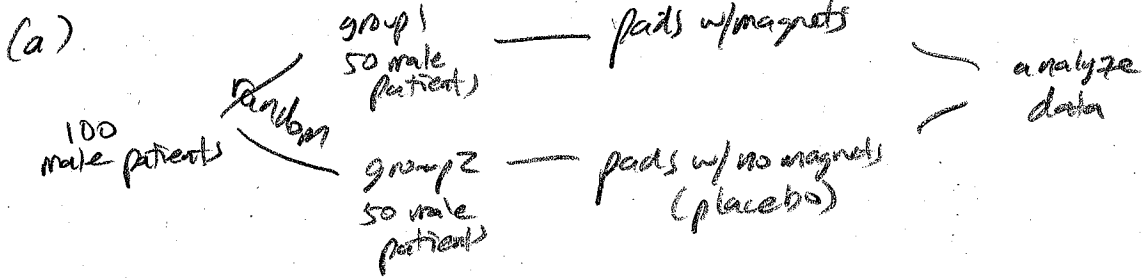 (a)
100
male patients
random
group 1
50 male
patients
pads w/magnets
group 2
50 male
patients
pads w/ no magnets
(placebo)
analyze
data